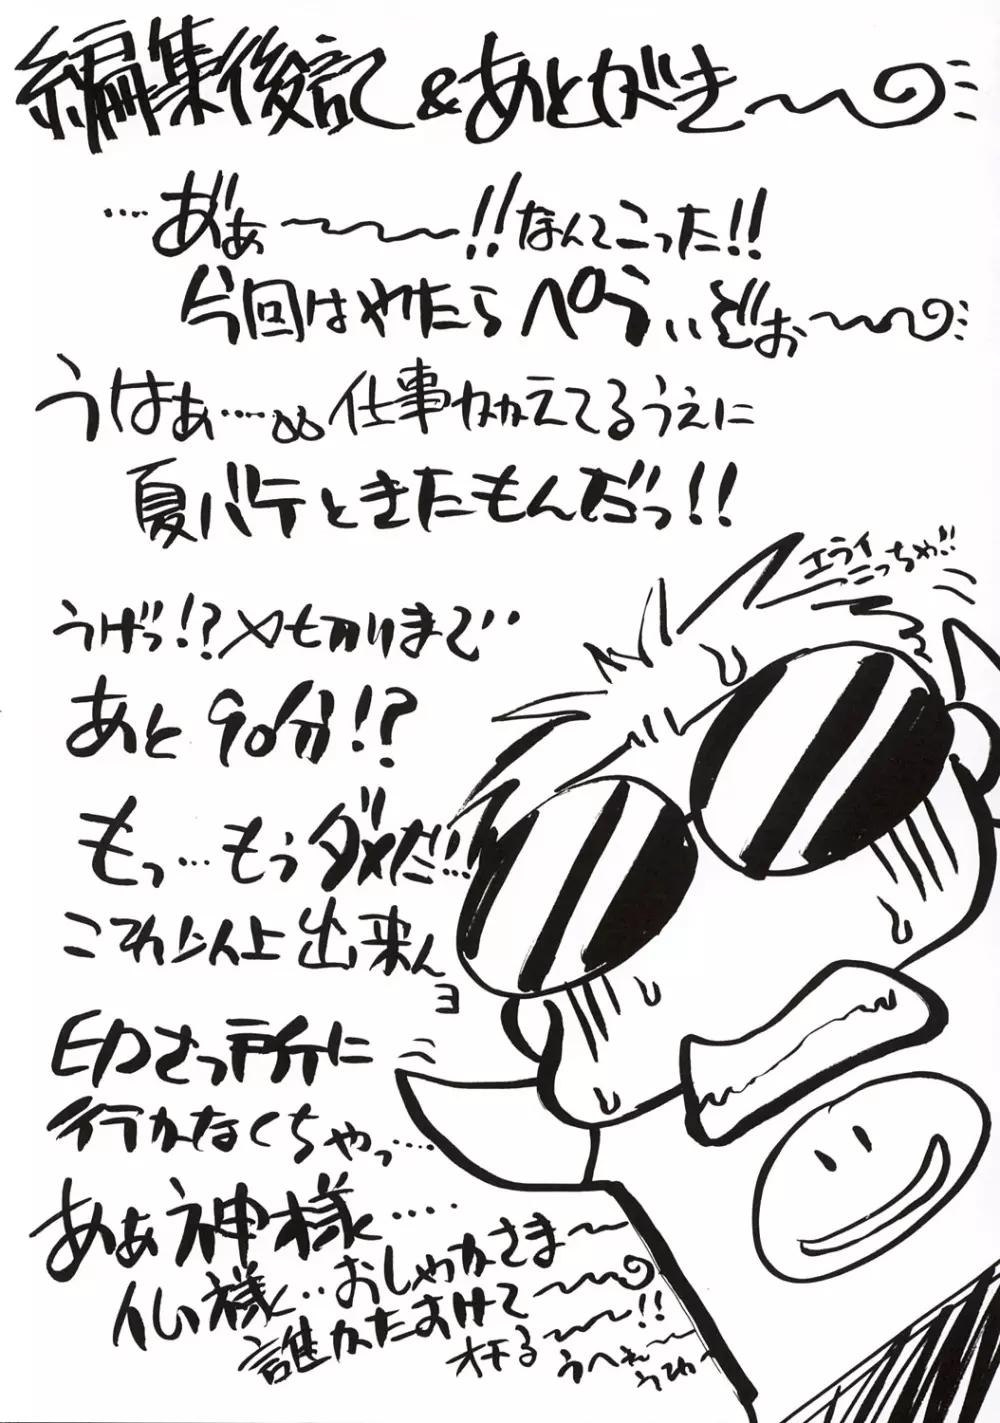 編集後記&あとがき〜〜
‥‥あ゛ぁ〜〜〜!!なんてこった!!
今回はやたらペラぃぞぉ〜〜〜
うはぁ‥‥。。仕事かかえてるうえに
夏バテときたもんだっ!!
エライ
こっちゃ!!
うげっ!?〆切りまで‥
あと90分!?
もっ…もうダメだ!!
これ以上出来ん
ヨ
印さつ所に
行かなくちゃっ‥‥
あぁ神様‥‥
仏様‥おしゃかさま〜
誰かたすけて〜〜
オチる〜〜!!
うへぇ〜
うひゃ〜